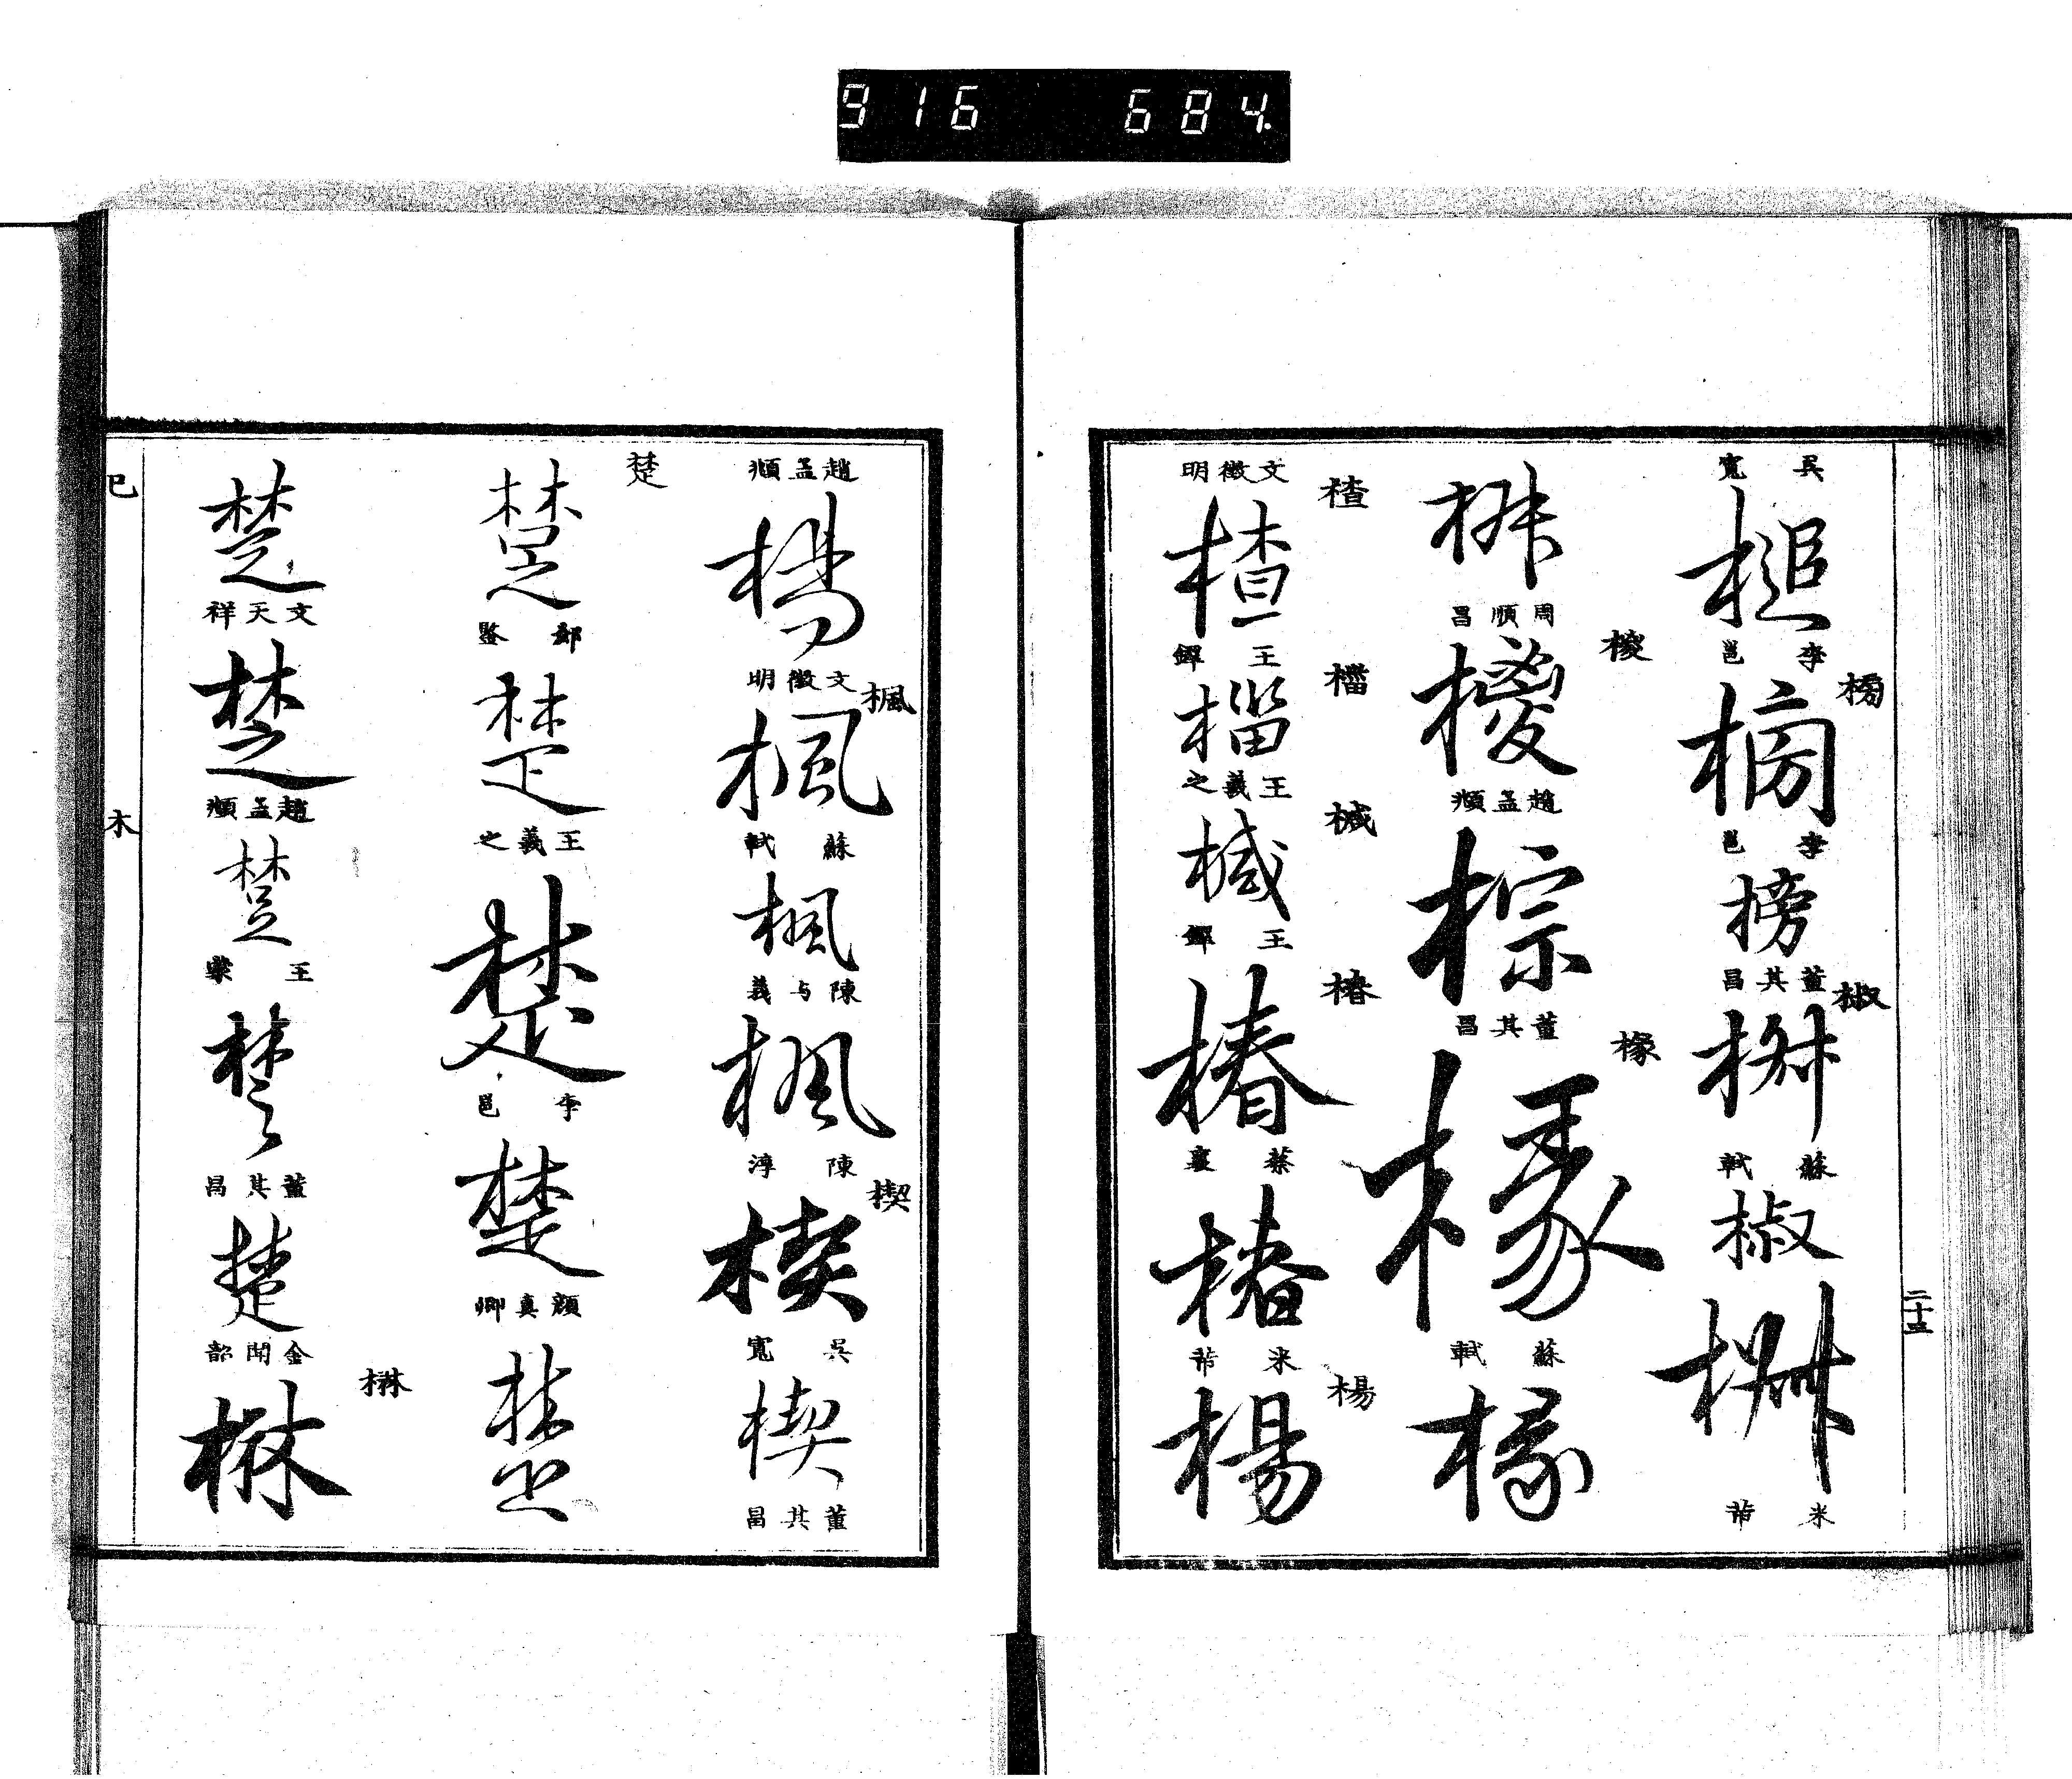 916 684.
二十三
槌
吳寬
榜
榜
李邕
榜
李邕
椒
椒
董其昌
椒
蘇軾
椒
米芾
椒
椶
椶
周順昌
棕
趙孟頫
椽
椽
董其昌
椽
蘇軾
楂
楂
文徵明
王鐸
椷
椷
王羲之
椿
椿
王鐸
椿
蔡襄
楊
楊
米芾
楊
趙孟頫
楓
楓
文徵明
楓
蘇軾
楓
陳与義
楔
楔
陳淳
楔
吳寬
董其昌
楚
楚
楚
郗鑒
楚
王羲之
楚
李邕
楚
顏真卿
楚
楚
文天祥
楚
趙孟頫
楚
王蒙
楚
董其昌
金聞韶
巳
木